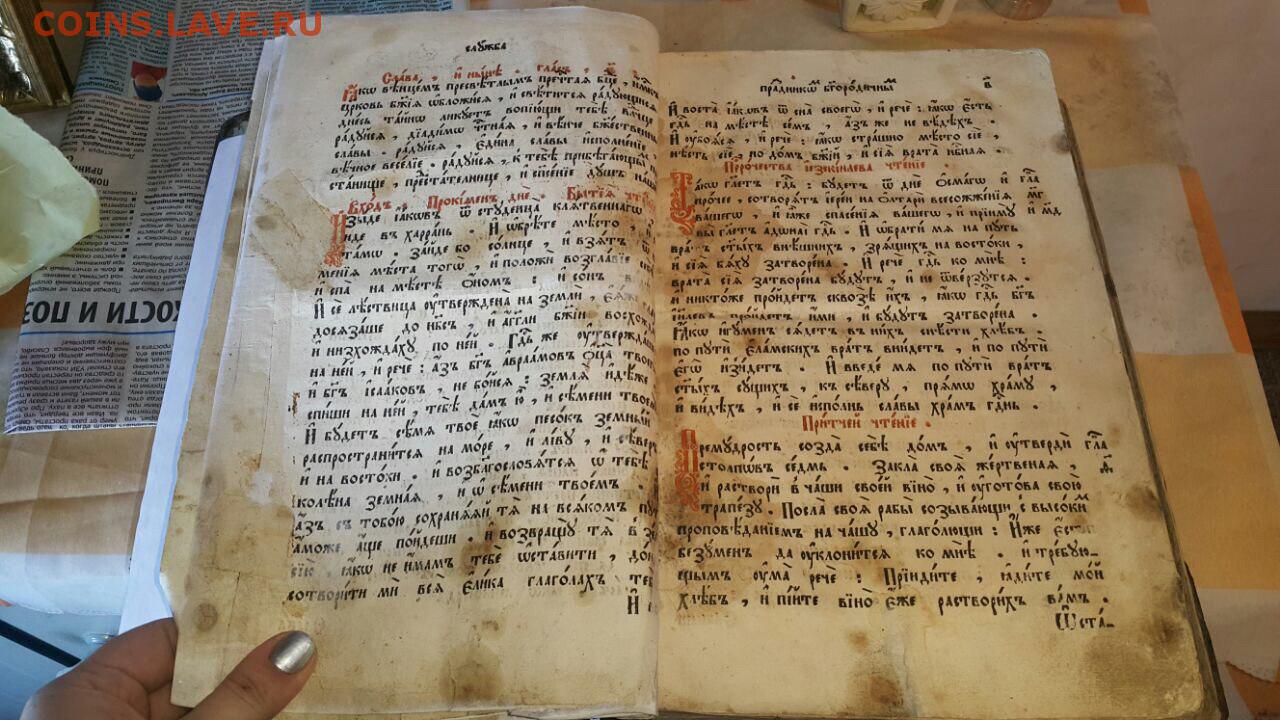 COINS.LAVE.RU
КОСТИ И ПОЗ
слꙋжба
Сла́ва, и҆ ны́нѣ. гла́съ,
Ꙗ҆́кѡ вѣнце́мъ пресвѣ́тлымъ пречⷭ҇таѧ бц҃е,
цр҃ковь бж҃їѧ ѡ҆бложи́сѧ, и҆ свѣ́титсѧ ра́дꙋющисѧ
дне́сь та́йнѡ ликꙋ́етъ, вопїю́щи тебѣ̀ влⷣчце
ра́дꙋйсѧ, дїади́мѡ чⷭ҇тна́ѧ, и҆ вѣ́нче бж҃е́ственныѧ
сла́вы. ра́дꙋйсѧ, є҆ди́на сла́вы и҆сполне́нїе,
вѣ́чное весе́лїе. ра́дꙋйсѧ, к тебѣ̀ прибѣга́ющымъ
ста́нище, предста́телнице, и҆ спⷭ҇е́нїе дꙋ́шъ на́шихъ
Вхо́дъ. Проки́менъ днѐ. Бытїѧ̀ чте́нїе
И҆зы́де і҆а́ковъ ѿ стꙋденца̀ клѧ́твеннагѡ
и҆́де в харра́нь. И҆ ѡ҆брѣ́те мѣ́сто, и҆
та́мѡ, за́йде бо со́лнце, и҆ взѧ́тъ ѿ
ме́нїѧ мѣ́ста тогѡ̀ и҆ положѝ возгла́вїе себѣ̀
и҆ спа̀ на мѣ́стѣ ѻ҆́номъ, и҆ со́нъ в
И҆ сѐ лѣ́ствица ᲂу҆твержде́на на землѝ, є҆ѧ́же
досѧза́ше до нб҃сѐ, и҆ а҆́гг҃ли бж҃їи восхожда́хꙋ
и҆ низхожда́хꙋ по не́й. Гдⷭ҇ь же ᲂу҆твержда́
на не́й, и҆ речѐ: а҆́зъ бг҃ъ а҆враа́мовъ ѻ҆ц҃а̀ твоего̀
и҆ бг҃ъ і҆саа́ковъ, не бо́йсѧ: землѧ̀ и҆дѣ́же
спи́ши на не́й, тебѣ̀ да́мъ ю҆̀, и҆ сѣ́мени твоемꙋ̀
И҆ бꙋ́детъ сѣ́мѧ твоѐ ꙗ҆́кѡ песо́къ земны́й
распространи́тсѧ на мо́ре, и҆ лі́вꙋ, и҆ сѣ́веръ
и҆ на восто́хи. и҆ возблагословѧ́тсѧ ѡ҆ тебѣ̀
колѣ́на земна́ѧ, и҆ ѡ҆ сѣ́мени твое́мъ.
а҆́зъ с тобо́ю сохранѧ́ѧй тѧ̀ на всѧ́комъ пꙋтѝ
а҆́може а҆́ще по́йдеши. и҆ возвращꙋ̀ тѧ̀ в зе́млю
сїю̀, ꙗ҆́кѡ не и҆́мамъ тебѐ ѡ҆ста́вити, до́н
сотвори́ти мѝ всѧ̀ є҆ли́ка глаго́лахъ тебѣ̀
И҆
пра́здникѡмъ бг҃оро́дичнымъ в҃
И҆ воста̀ і҆а́ковъ ѿ сна̀ своегѡ̀, и҆ речѐ: ꙗ҆́кѡ є҆́сть
гдⷭ҇ь на мѣ́стѣ се́мъ, а҆́зъ же не вѣ́дѣхъ.
И҆ ᲂу҆боѧ́сѧ, и҆ речѐ: ꙗ҆́кѡ стра́шно мѣ́сто сїѐ,
нѣ́сть сїѐ, но до́мъ бж҃їй, и҆ сїѧ̀ врата̀ нбⷭ҇наѧ.
Прⷪ҇ро́чества і҆езекі́илева чте́нїе.
Та́кѡ гл҃етъ гдⷭ҇ь: бꙋ́детъ ѿ днѐ ѻ҆сма́гѡ и҆ гла҃
про́чее, сотворѧ́тъ і҆ере́и на ѻ҆лтарѝ всесожже́нїѧ мг҃
ва́шегѡ, и҆ ꙗ҆́же спасе́нїѧ ва́шегѡ, и҆ прїимꙋ̀ и҆ мд҃
вы̀ гл҃етъ а҆дѡнаи̑ гдⷭ҇ь. И҆ ѡ҆братѝ мѧ̀ на пꙋ́ть
вра́тъ ст҃ы́хъ внѣ́шнихъ, зрѧ́щихъ на восто́ки,
и҆ сїѧ̀ бѧ́хꙋ затворе́на. И҆ речѐ гдⷭ҇ь ко мнѣ̀:
врата̀ сїѧ̀ затворе́на бꙋ́дꙋтъ, и҆ не ѿве́рзꙋтсѧ.
и҆ никто́же про́йдетъ сквозѣ̀ и҆̀хъ, ꙗ҆́кѡ гдⷭ҇ь бг҃ъ
і҆и҃левъ про́йдетъ и҆́ми, и҆ бꙋ́дꙋтъ затворе́на.
Ꙗ҆́кѡ и҆гꙋ́менъ сѧ́детъ в ни́хъ снѣ́сти хлѣ́бъ.
по пꙋтѝ є҆ла́мскихъ вра́тъ вни́детъ, и҆ по пꙋтѝ
є҆гѡ̀ и҆зы́детъ. И҆ введе́ мѧ по пꙋтѝ вра́тъ
ст҃ы́хъ сꙋ́щихъ, к сѣ́верꙋ, прѧ́мѡ хра́мꙋ,
и҆ ви́дѣхъ, и҆ сѐ и҆спо́лнь сла́вы хра́мъ гдⷭ҇нь.
При́тчей чте́нїе.
Премꙋ́дрость созда̀ себѣ̀ до́мъ, и҆ ᲂу҆твердѝ гла҃
столпѡ́въ се́дмь. Закла̀ своѧ̀ же́ртвенаѧ, ѳ҃
и҆ растворѝ в ча́ши свое́й вїно̀, и҆ ᲂу҆гото́ва свою̀
трапе́зꙋ. Посла̀ своѧ̀ рабы̀ созыва́ющи с высо́кимъ
проповѣ́данїемъ на ча́шꙋ, глаго́лющи: И҆́же є҆́сть
безꙋ́менъ да ᲂу҆клони́тсѧ ко мнѣ̀. и҆ тре́бꙋю-
щымъ ᲂу҆ма̀ речѐ: Прїиди́те, ꙗ҆ди́те мо́й
хлѣ́бъ, и҆ пі́йте вїно̀ є҆́же раствори́хъ ва́мъ.
Ѡ҆ста́-